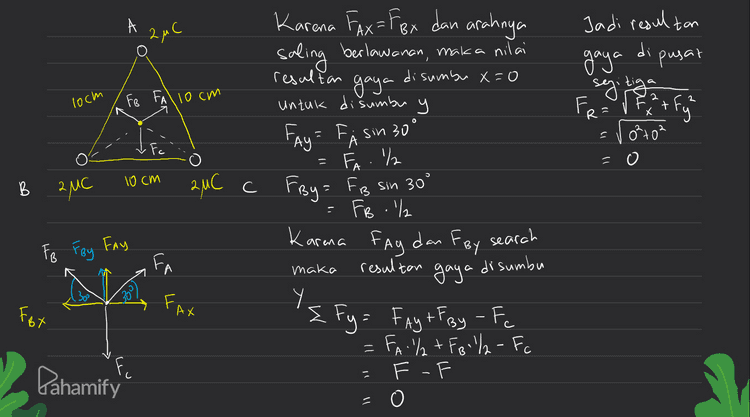 A 2 μC
10 cm
F_B F_A
10 cm
F_C
B 2 μC 10 cm 2 μC C
F_B F_By F_Ay F_A
30° 30°
F_Bx F_Ax
F_C
Pahamify
Karena F_AX = F_BX dan arahnya
saling berlawanan, maka nilai
resultan gaya disumbu x = 0
untuk disumbu y
F_Ay = F_A sin 30°
= F_A . 1/2
F_By = F_B sin 30°
= F_B . 1/2
Karena F_Ay dan F_By searah
maka resultan gaya disumbu
y
Σ F_y = F_Ay + F_By - F_C
= F_A . 1/2 + F_B . 1/2 - F_C
= F - F
= 0
Jadi resultan
gaya di pusat
segitiga
F_R = √F_x² + F_y²
= √0² + 0²
= 0